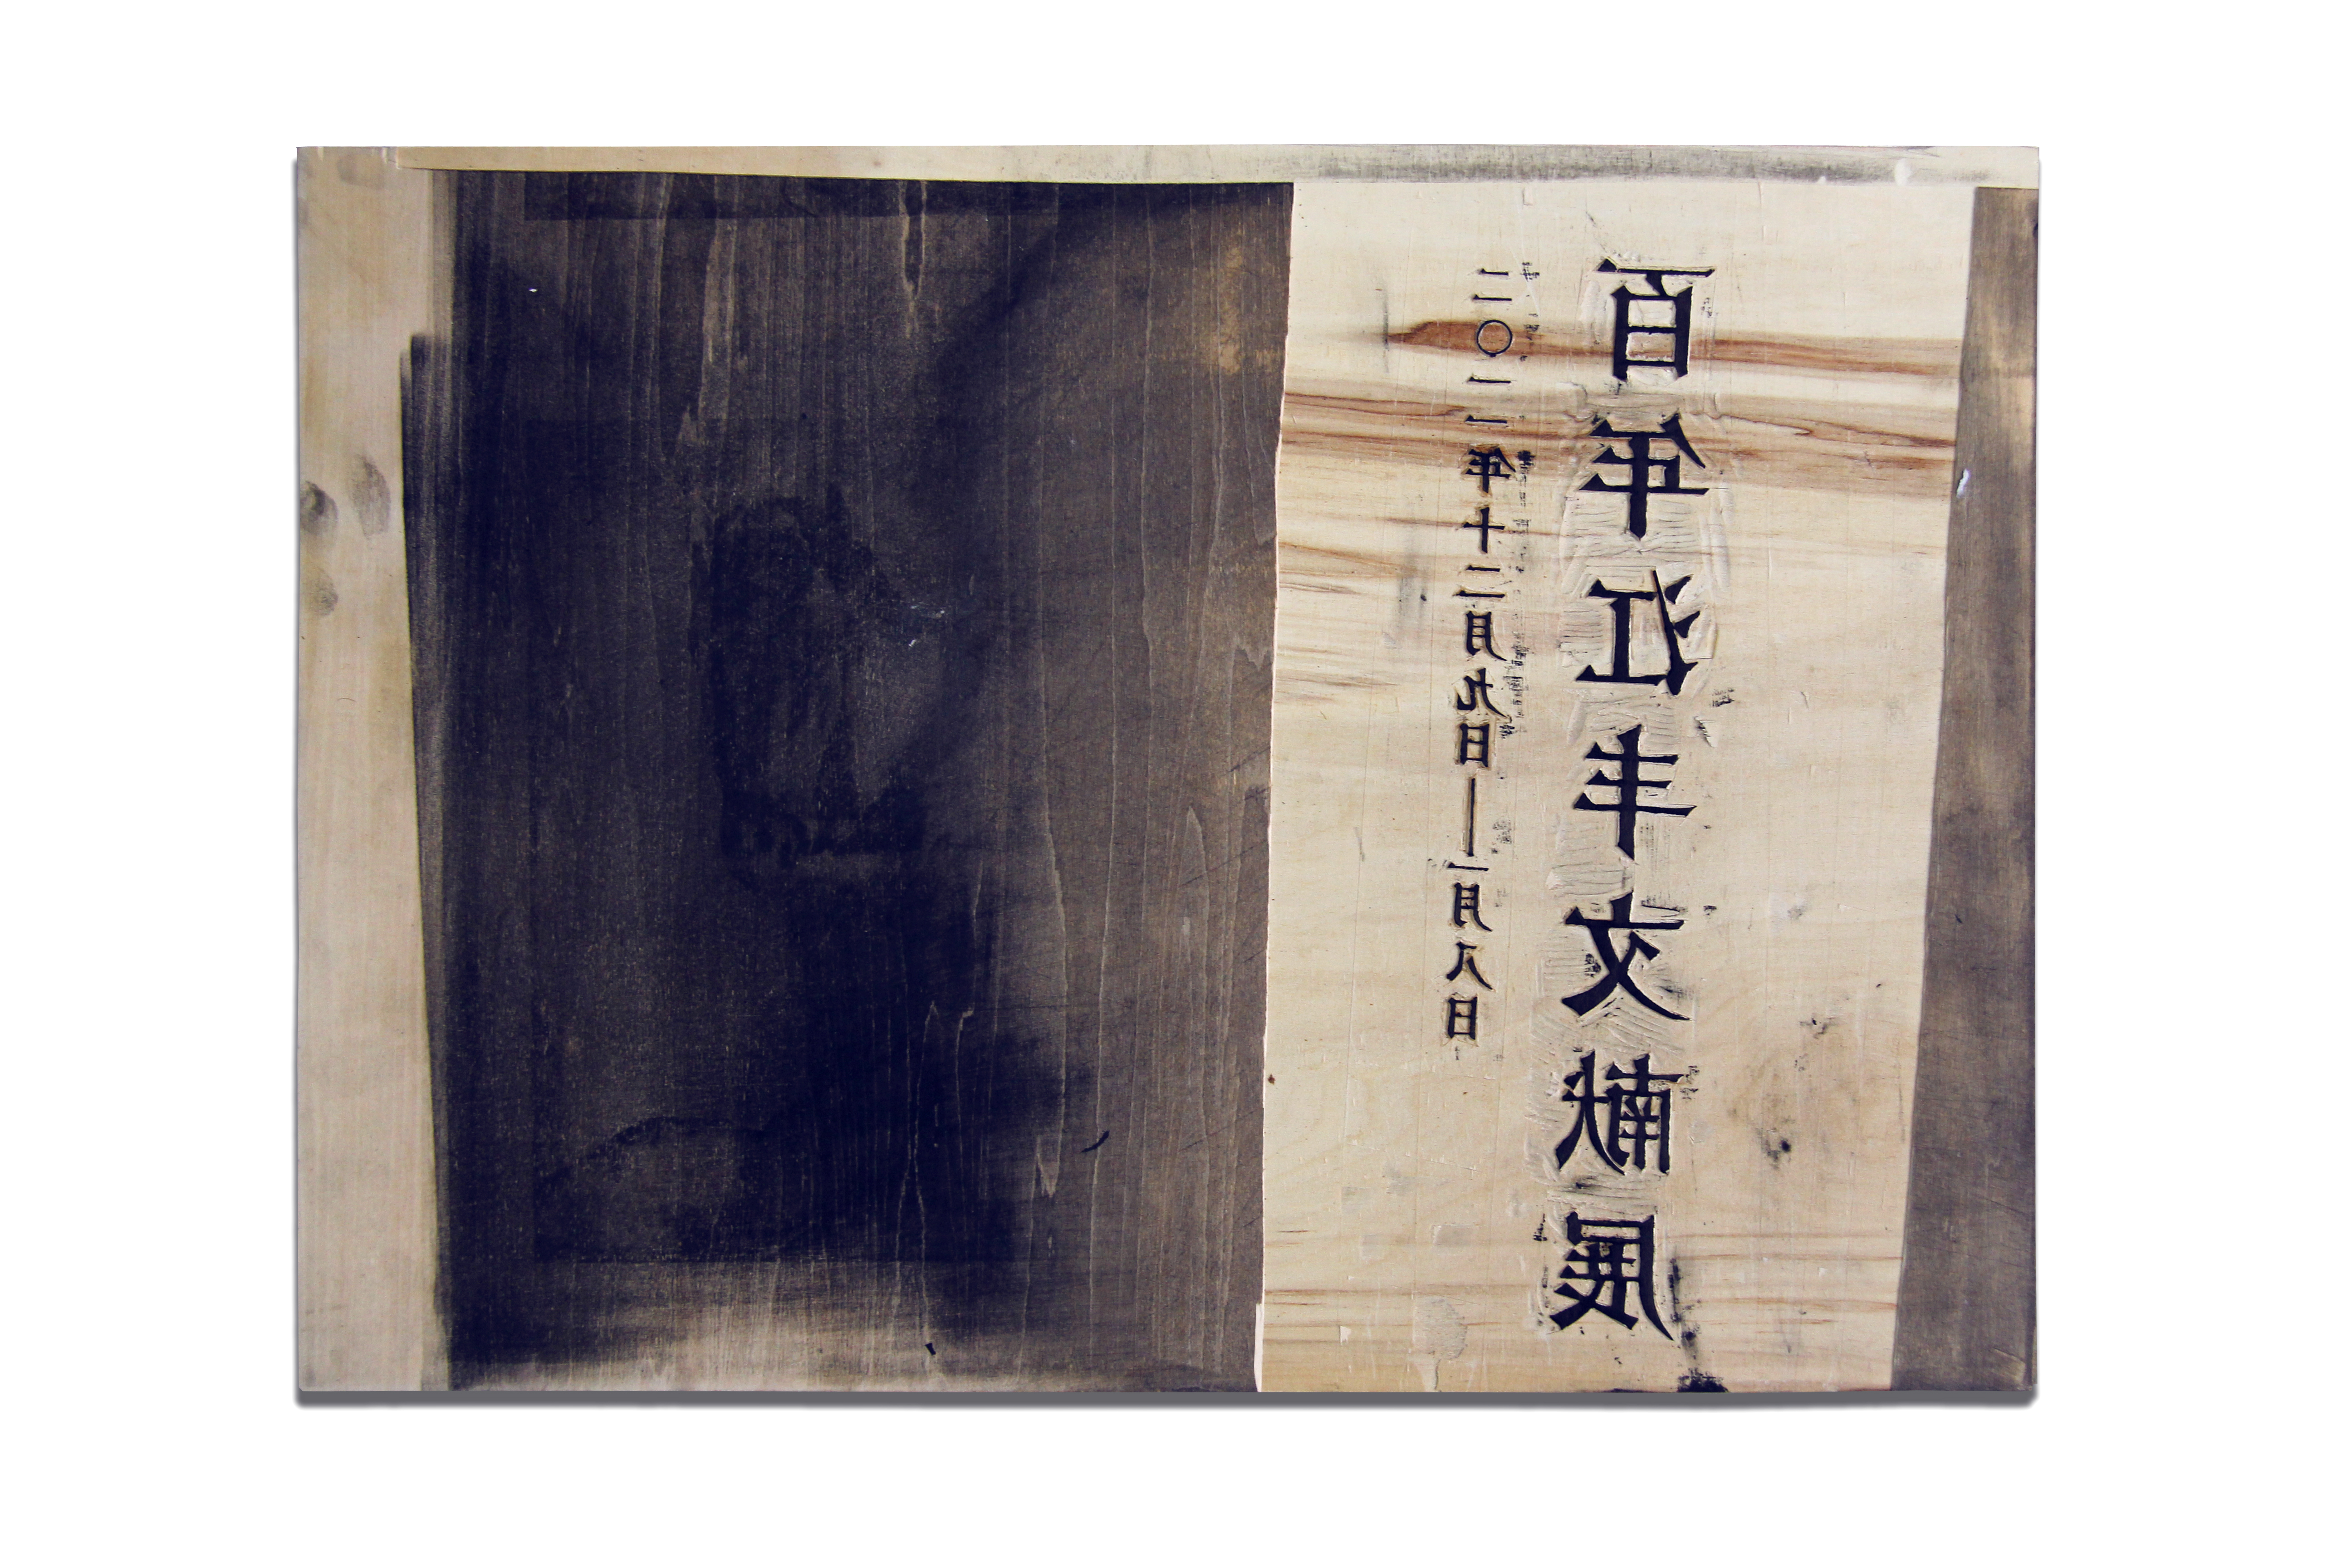 百年江丰文献展
二〇一一年十二月九日—一月八日